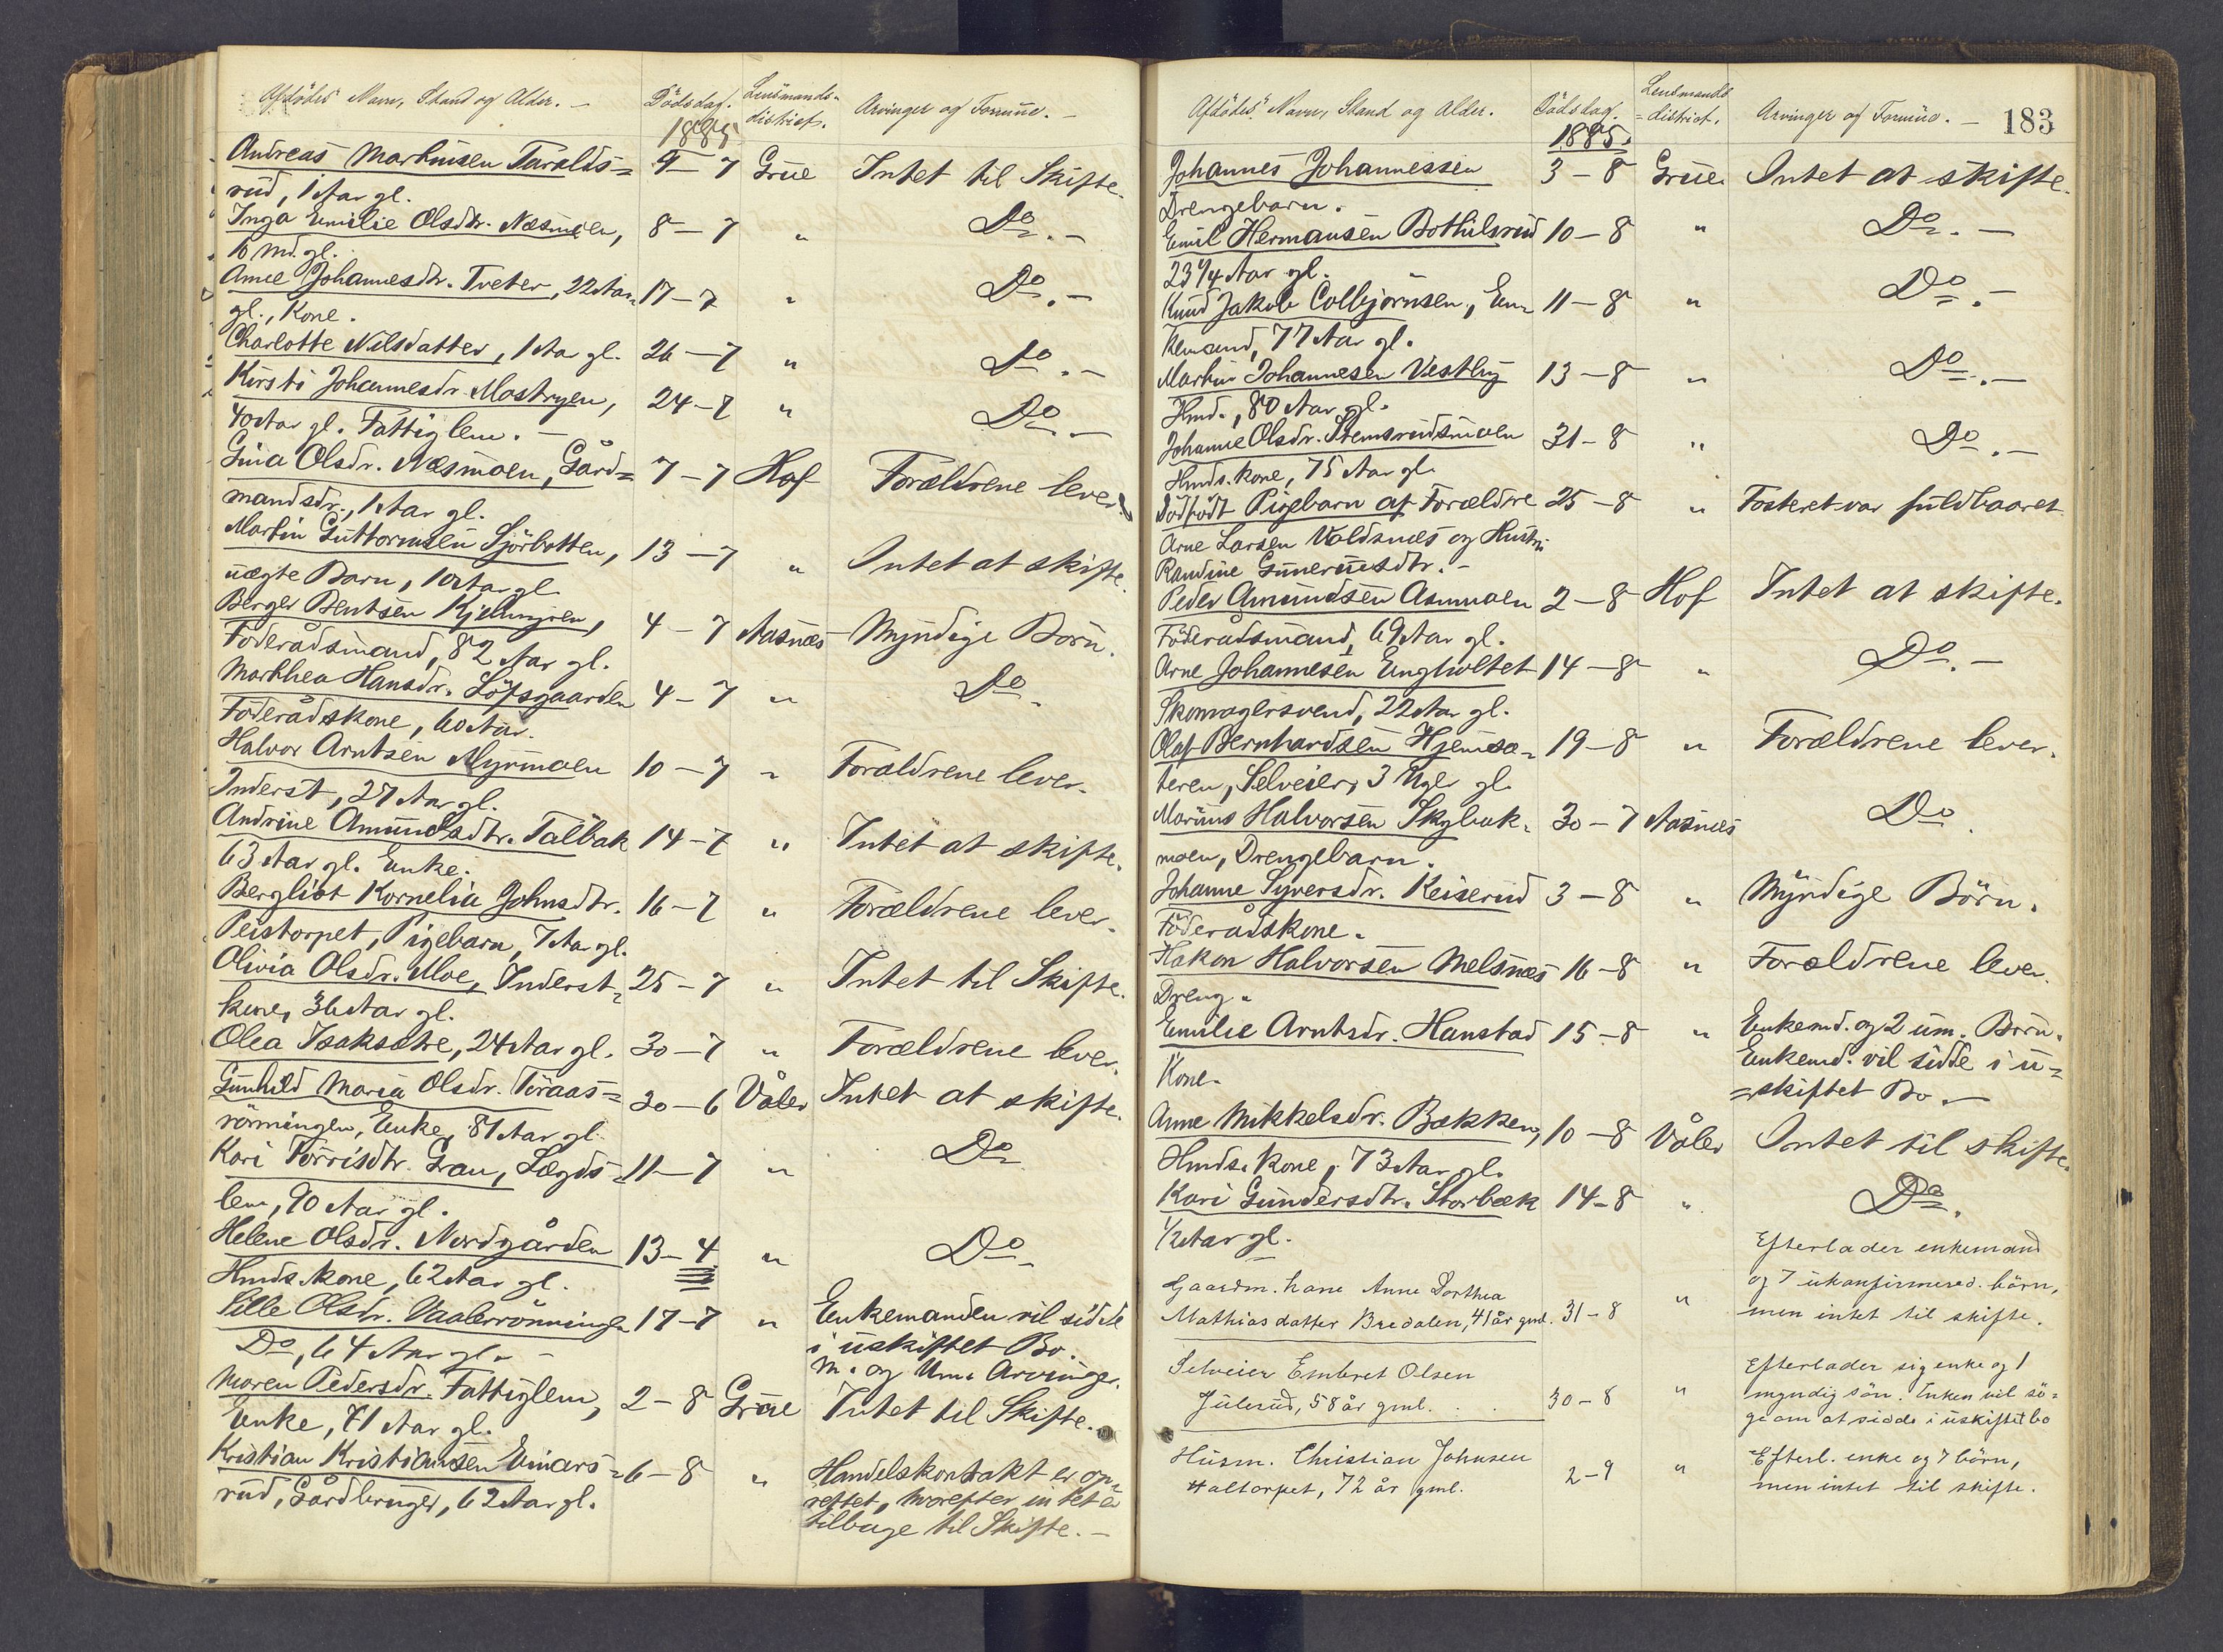 Afdödes Navn, Stand og Alder. —
Dödsdag.
Lensmands-
district.
Arvinger og Formue. —
1885
Andreas Martinsen Taralds= 9–7 Grue Intet til Skifte.
rud, 1 Aar gl.
Inga Emilie Olsdtr. Næsmoen, 8–7 " Do. —
10 Md. gl.
Anne Johannesdtr. Tveter, 22 Aar 17–7 " Do. —
gl., Kone.
Charlotte Nilsdatter, 1 Aar gl. 26–7 " Do. —
Kirsti Johannesdr. Mostryen, 24–7 " Do. —
40 Aar gl. Fattiglem. —
Gina Olsdr. Næsmoen, Gård= 7–7 Hof Forældrene lever.
mandsdr., 1 Aar gl.
Martin Guttormsen Sjörbotten, 13–7 " Intet at skifte.
uægte Barn, 10 Aar gl
Berger Bentsen Kjelmyren, 4–7 Aasnæs Myndige Börn.
Föderådsmand, 82 Aar gl.
Marthea Hansdr. Löfsgaarden 4–7 " Do.
Föderådskone, 60 Aar.
Halvor Arntsen Myrmoen 10–7 " Forældrene lever.
Inderst, 27 Aar gl.
Andrine Amundsdtr. Talbak 14–7 " Intet at skifte.
63 Aar gl. Enke.
Bergliot Kornelia Johnsdtr. 16–7 " Forældrene lever.
Peistorpet, Pigebarn, 7 Aar gl.
Olivia Olsdr. Moe, Inderst- 25–7 " Intet til Skifte.
kone, 36 Aar gl.
Olea Isaksætre, 24 Aar gl. 30–7 " Forældrene lever.
Gunhild Maria Olsdr. Toraas= 30–6 Våler Intet at skifte.
rönningen, Enke, 81 Aar gl.
Kari Torrisdtr. Grau, Lægds- 11–7 " Do
lem, 90 Aar gl.
Helene Olsdr. Nordgården 13–4 " Do —
Hmds. kone, 62 Aar gl.
Sille Olsdr. Vaalerrönningen 17–7 " Enkemanden vil sidde
Do, 64 Aar gl. — i uskiftet Bo.
M. og Um. Arvinger.
Maren Pedersdr. Fattiglem, 2–8 Grue Intet til Skifte.
Enke, 71 Aar gl.
Kristian Kristiansen Einars- 6–8 " Handelskontrakt er op-
rud, Gårdbruger, 62 Aar gl. rettet, hvorefter intet er
tilbage til Skifte. —
Afdödes Navn, Stand og Alder.
Dödsdag.
Lensmands
=district.
Arvinger og Formue. —
183
1885.
Johannes Johannessen 3–8 Grue Intet at skifte.
Drengebarn.
Emil Hermansen Bothilsrud 10–8 " Do. —
23 1/4 Aar gl.
Knud Jakob Colbjörnsen, En- 11–8 " Do. —
kemand, 77 Aar gl.
Martin Johannesen Vestby 13–8 " Do. —
Hmd., 80 Aar gl.
Johanne Olsdr. Stemsrudsmoen 31–8 " Do. —
Hmds. kone, 75 Aar gl.
Dödfödt Pigebarn af Forældre 25–8 " Fosteret var fuldbaaret
Arne Larsen Voldsnes og Hustru
Randine Gunerusdtr. —
Peder Amundsen Asmmoen 2–8 Hof Intet at skifte.
Föderådsmand, 69 Aar gl.
Arne Johannesen Engholtet 14–8 " Do. —
Skomagersvend, 22 Aar gl.
Olaf Bernhardsen Hjemsæ- 19–8 " Forældrene lever.
teren, Selveier, 3 Uger gl.
Marius Halvorsen Skybak- 30–7 Aasnæs Do.
moen, Drengebarn.
Johanne Syversdr. Keiserud 3–8 " Myndige Börn.
Föderådskone.
Hakon Halvorsen Melsnæs 16–8 " Forældrene lever.
Dreng.
Emilie Arntsdr. Hanstad 15–8 " Enkemd. og 2 um. Börn.
Kone. Enkemd. vil sidde i u-
=skiftet Bo. —
Anne Mikkelsdr. Bakken, 10–8 Våler Intet til skifte.
Hmds. kone, 73 Aar gl.
Kari Gundersdtr. Storbæk 14–8 " Do.
1/2 Aar gl.
Gaardm. kone Anne Dorthea " Efterlader enkemand
Mathiasdatter Bredalen, 41 år gml. 31–8 og 7 ukonfirmered. börn,
men intet til skifte.
Selveier Embret Olsen Efterlader sig enke og 1
Julerud, 58 år gml. . . 30–8 " myndig sön. Enken vil sö-
ge om at sidde i uskiftet bo
Husm. Christian Johnsen Efterl. enke og 7 börn,
Haltorpet, 72 år gml. 2–9 " men intet til skifte.